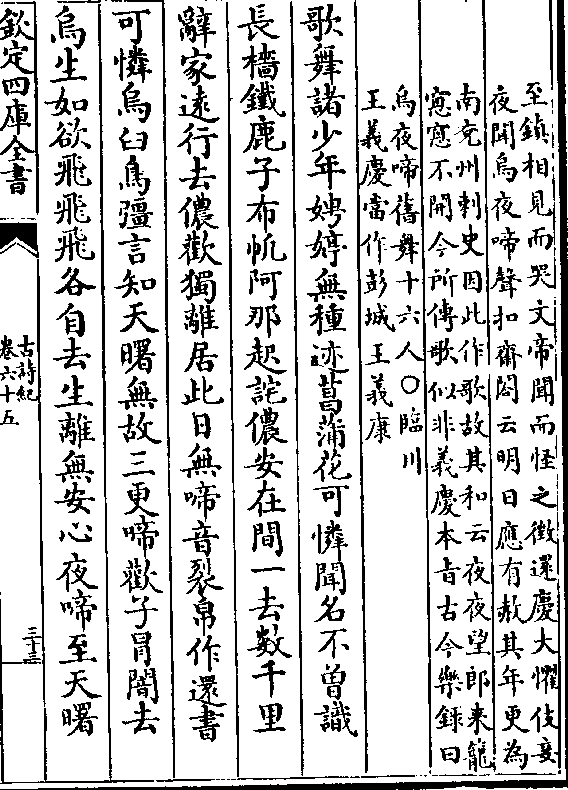 至鎮相見而哭文帝聞而怪之徵還慶大懼伎妾
夜聞烏夜啼聲扣齋閤云明日應有赦其年更為
南兖州刺史因此作歌故其和云夜夜望郎来籠
窓窓不開今所傳歌似非義慶本旨古今樂録曰
烏夜啼舊舞十六人○臨川
王義慶當作彭城王義康
歌舞諸少年娉婷無種迹菖蒲花可憐聞名不曽識
長檣鐵鹿子布帆阿那起詫儂安在間一去數千里
辭家遠行去儂歡獨離居此日無啼音裂帛作還書
可憐烏臼鳥彊言知天曙無故三更啼歡子冒闇去
烏生如欲飛飛飛各自去生離無安心夜啼至天曙
欽定四庫全書
古詩紀
卷六十五
三十三